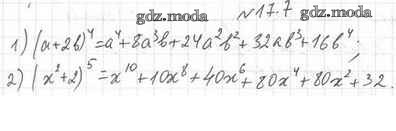 gdz.moda
№17.7 gdz.moda
1) (a+2b)⁴=a⁴+8a³b+24a²b²+32ab³+16b⁴;
2) (x²+2)⁵=x¹⁰+10x⁸+40x⁶+80x⁴+80x²+32.